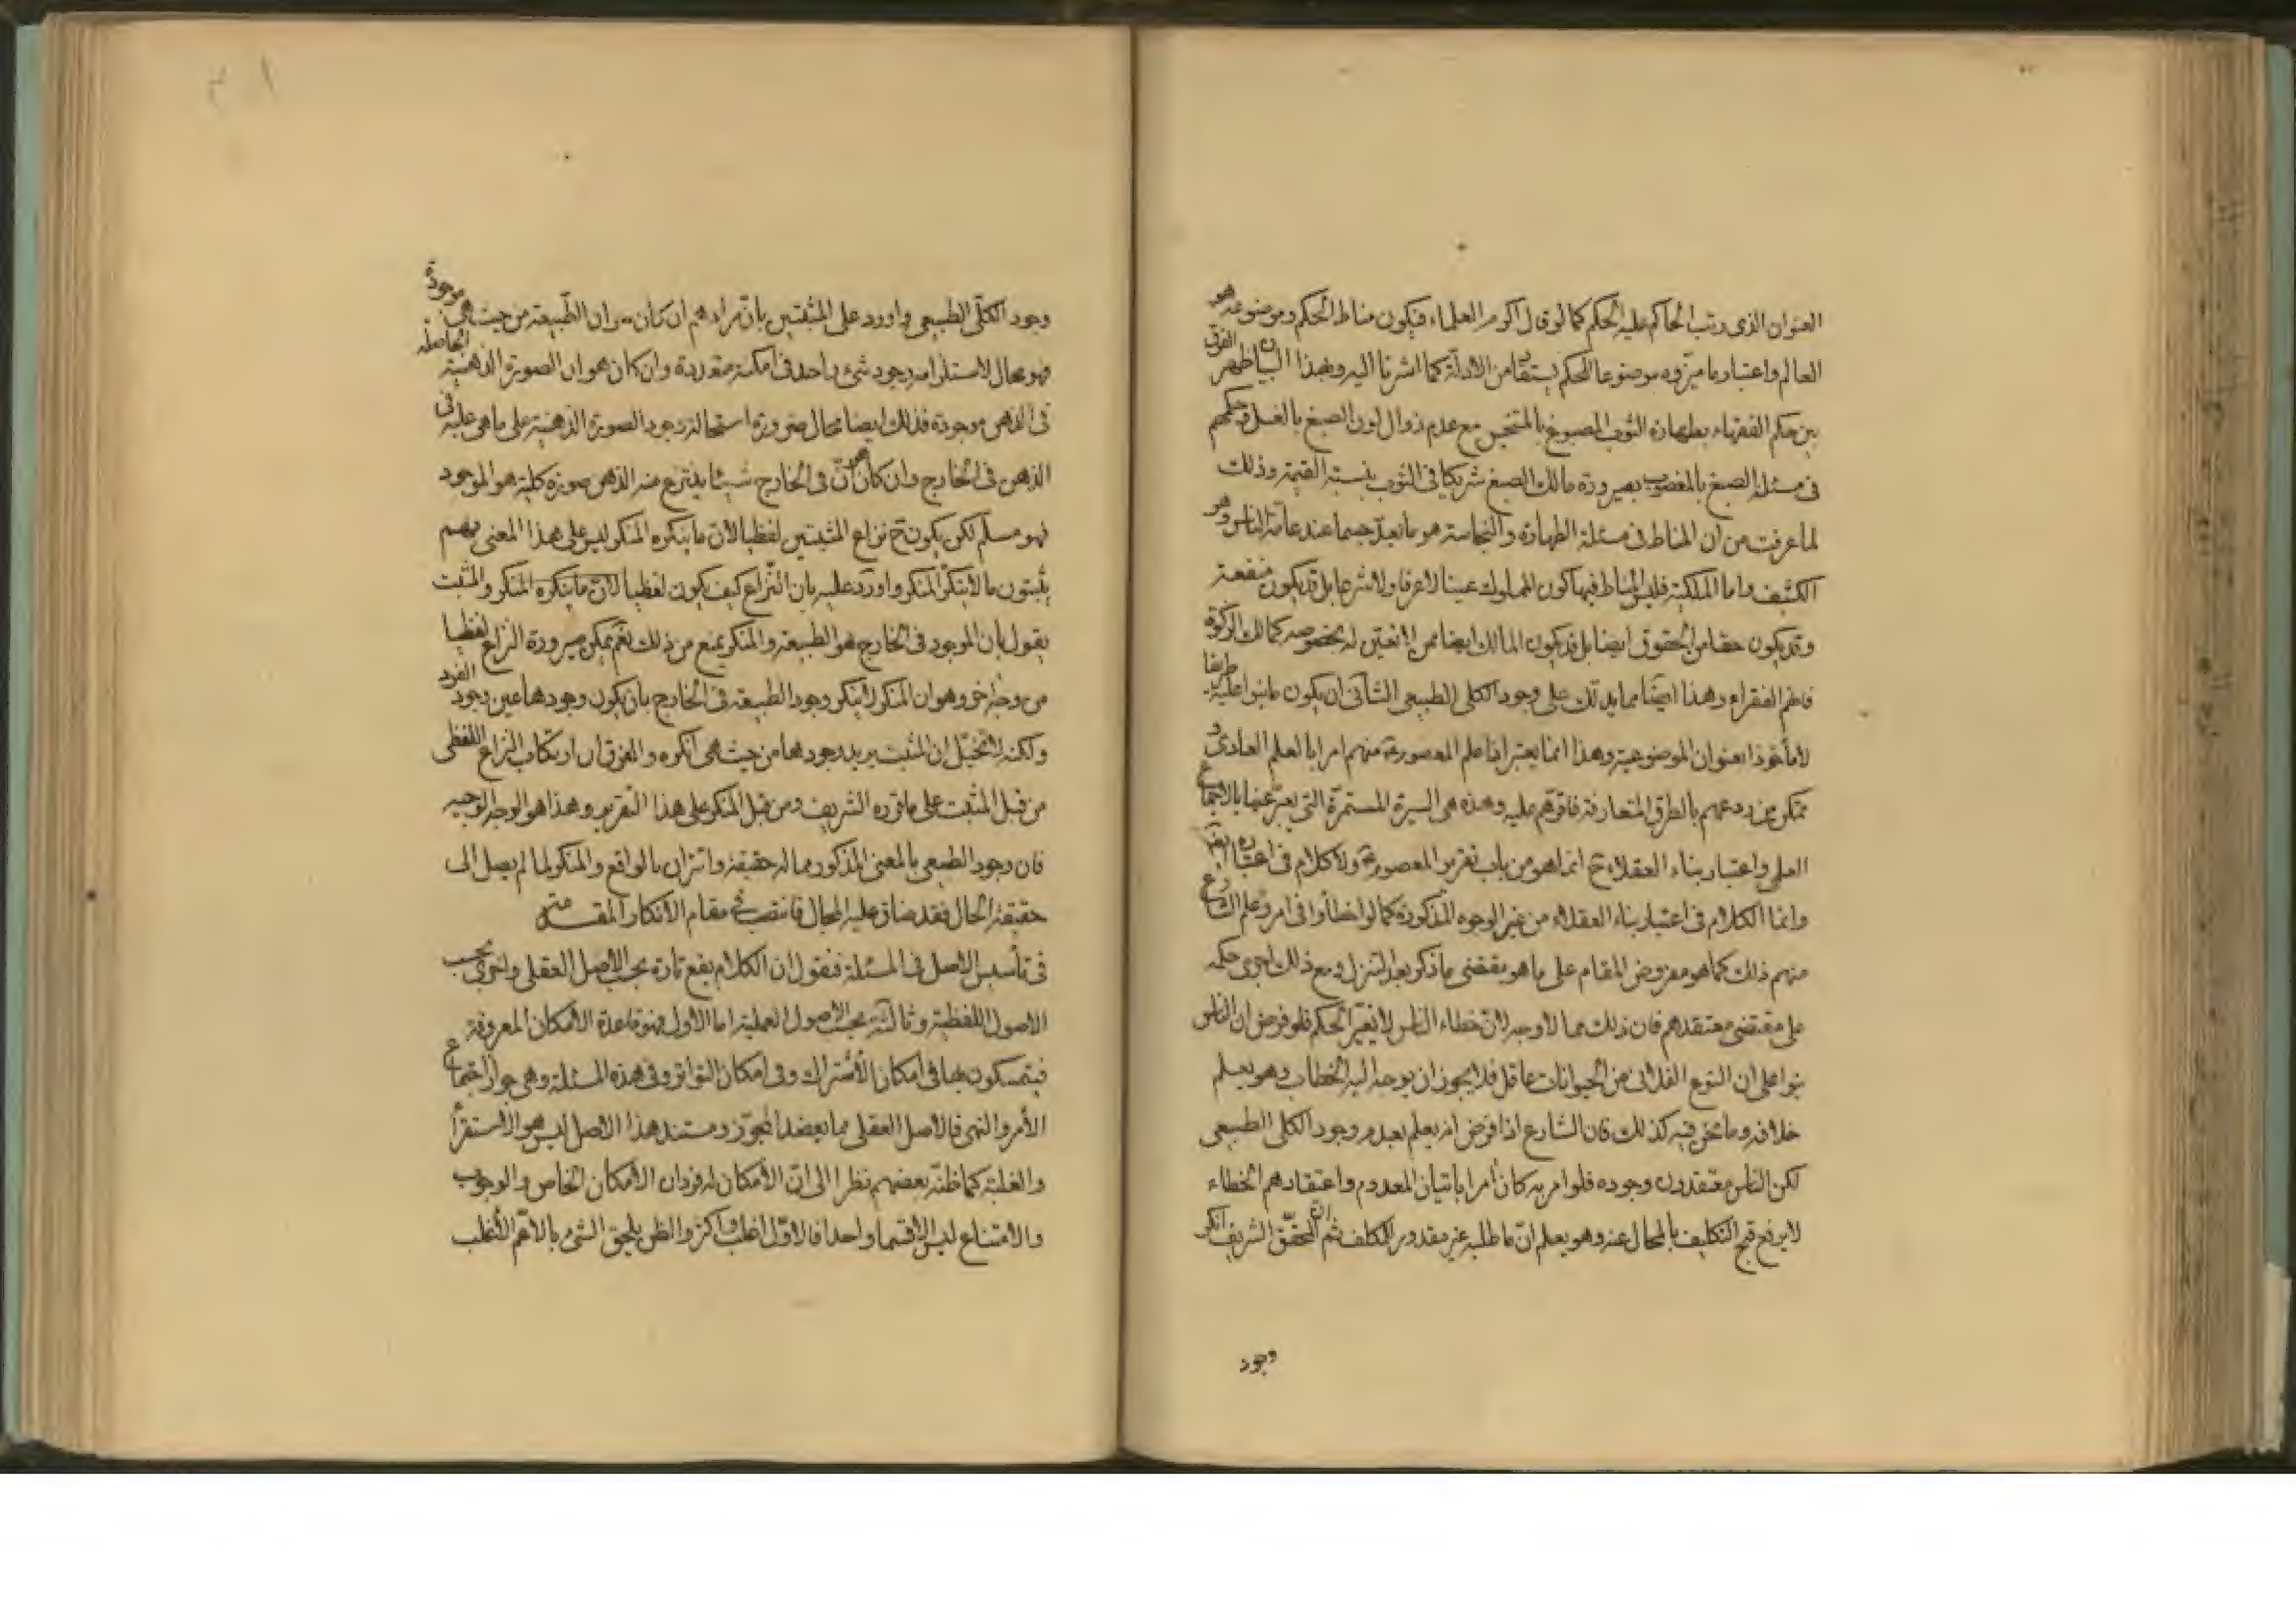 العنوان الذى رتب الحاكم عليه الحكم كما لو قال اكرم العلماء فيكون مناط الحكم وموضوعه هو
العالم واعتبار ما ميزوه موضوعا للحكم يستفاد من الادلة كما اشرنا اليه وبهذا البيان ظهر الفرق
بين حكم الفقهاء بطهارة الثوب المصبوغ بالمتنجس مع عدم زوال لون الصبغ بالغسل وحكمهم
فى مسئلة الصبغ بالمغصوب بصيرورة مالك الصبغ شريكا فى الثوب بنسبة القيمة وذلك
لما عرفت من ان المناط فى مسئلة الطهارة والنجاسة هو ما يعدّ جسما عند عامة الناس وهو
الكثيف واما الملكية فليس المناط فيها كون المملوك عينا لا عرفا ولا شرعا بل قد يكون منفعة
وقد يكون حقا من الحقوق ايضا بل قد يكون المالك ايضا ممن لا تعين له بخصوصه كمالك الزكوة
فانهم الفقراء وهذا ايضا مما يدلك على وجود الكلى الطبيعى الثانى ان يكون ما بنوا عليه طريقا
لا مأخوذا بعنوان الموضوعية وهذا انما يعتبر اذا علم المعصوم ع منهم امرا بالعلم العادى و
تمكن من ردعهم بالطرق المتعارفة فاقرّهم عليه وهذه هى السيرة المستمرّة التى يعبّر عنها بالاجماع
العلمى واعتبار بناء العقلاء ح انما هو من باب تقرير المعصوم ع ولا كلام فى اعتباره
وانما الكلام فى اعتبار بناء العقلاء من غير الوجوه المذكورة كما لو اخطأوا فى امر وعلم الشارع
منهم ذلك كما هو مفروض المقام على ما هو مقتضى ما ذكر بعد التنزل ومع ذلك اجرى حكمه
على مقتضى معتقدهم فان ذلك مما لا وجه له لان خطاء الناس لا يغيّر الحكم فلو فرض ان الناس
بنوا على ان النوع الفلانى من الحيوانات عاقل فلا يجوز ان يوجه اليه الخطاب وهو يعلم
خلافه وما نحن فيه كذلك فان الشارع اذا فرض انه يعلم بعدم وجود الكلى الطبيعى
لكن الناس معتقدون وجوده فلو امر به كان أمرا باتيان المعدوم واعتقادهم الخطاء
لا يرفع قبح التكليف بالمحال عنه وهو يعلم انّ ما طلبه غير مقدور للمكلف ثم ان المحقّق الشريف انكر
وجود
وجود الكلّى الطبيعى واورد على المثبتين بانّ مرادهم ان كان ان الطّبيعة من حيث هى موجودة
فهو محال لاستلزامه وجود شئ واحد فى امكنة متعددة وان كان هو ان الصورة الذهنية الحاصلة
فى الذهن موجودة فذلك ايضا محال ضرورة استحالة وجود الصورة الذهنية على ما هى عليه فى
الذهن فى الخارج وان كان هو انّ فى الخارج شيئا ينتزع منه الذهن صورة كلية هو الموجود
فهو مسلّم لكن يكون ح نزاع المثبتين لفظيا لانّ ما ينكره المنكر ليس على هذا المعنى فهم
يثبتون ما لا ينكره المنكر واورد عليه بان النّزاع كيف يكون لفظيا لانّ ما ينكره المنكر والمثبت
يقول بان الموجود فى الخارج هو الطبيعة والمنكر يمنع من ذلك نعم يمكن صيرورة النزاع لفظيا
من وجه اخر وهو ان المنكر لا ينكر وجود الطبيعة فى الخارج بان يكون وجودها عين وجود الفرد
ولكنه لتخيّل ان المثبت يريد وجودها من حيث هى انكره والفرق ان ارتكاب النزاع اللفظى
من قبل المثبت على ما قرره الشريف ومن قبل المنكر على هذا التقرير وهذا هو الوجه الوجيه
فان وجود الطبيعى بالمعنى المذكور مما له حقيقة واتزان بالواقع والمنكر لما لم يصل الى
حقيقة الحال فقد ضاق عليه المجال فانتصب فى مقام الانكار المقدمة
فى تأسيس الاصل فى المسئلة فنقول ان الكلام يقع تارة بحسب الاصل العقلى واخرى بحسب
الاصول اللفظية وثالثة بحسب الاصول العملية اما الاول فهو قاعدة الامكان المعروفة
فيتمسكون بها فى امكان الاشتراك وفى امكان التواتر وفى هذه المسئلة وهى جواز اجتماع
الأمر والنهى فالاصل العقلى مما يعضد المجوّز ومستند هذا الاصل ليس هو الاستقراء
والغلبة كما ظنّه بعضهم نظرا الى انّ الامكان له فردان الامكان الخاص والوجوب
والامتناع ليس الا قسما واحدا فالاوّل اغلب واكثر والظن يلحق الشئ بالاعمّ الأغلب